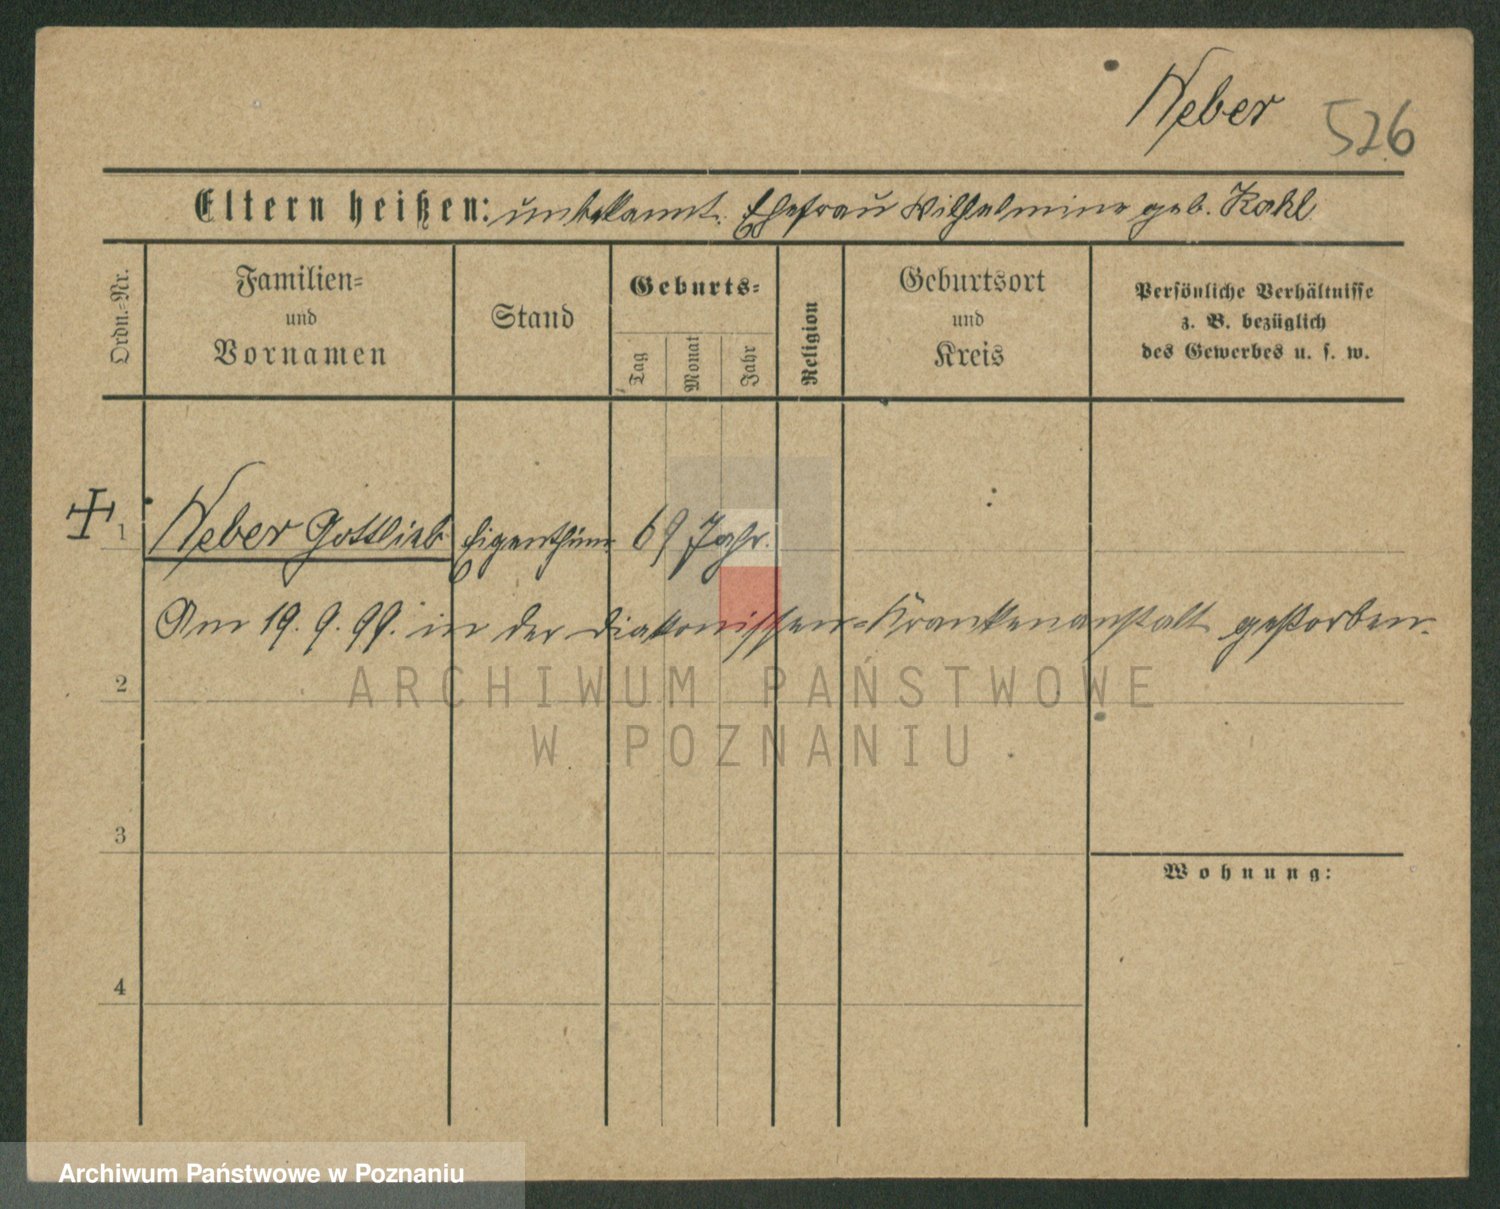 Weber 526
Eltern heißen: unbekannt. Ehefrau Wilhelmine geb. Kahl
Ordn.-Nr.
Familien-
und
Vornamen
Stand
Geburts-
Tag
Monat
Jahr
Religion
Geburtsort
und
Kreis
Persönliche Verhältnisse
z. B. bezüglich
des Gewerbes u. s. w.
1 Weber Gottlieb Eigenthüm 69 Jahr.
Am 19. 9. 99. in der Diakonissen-Krankenanstalt gestorben.
2
ARCHIWUM PAŃSTWOWE
W POZNANIU
3
Wohnung:
4
Archiwum Państwowe w Poznaniu